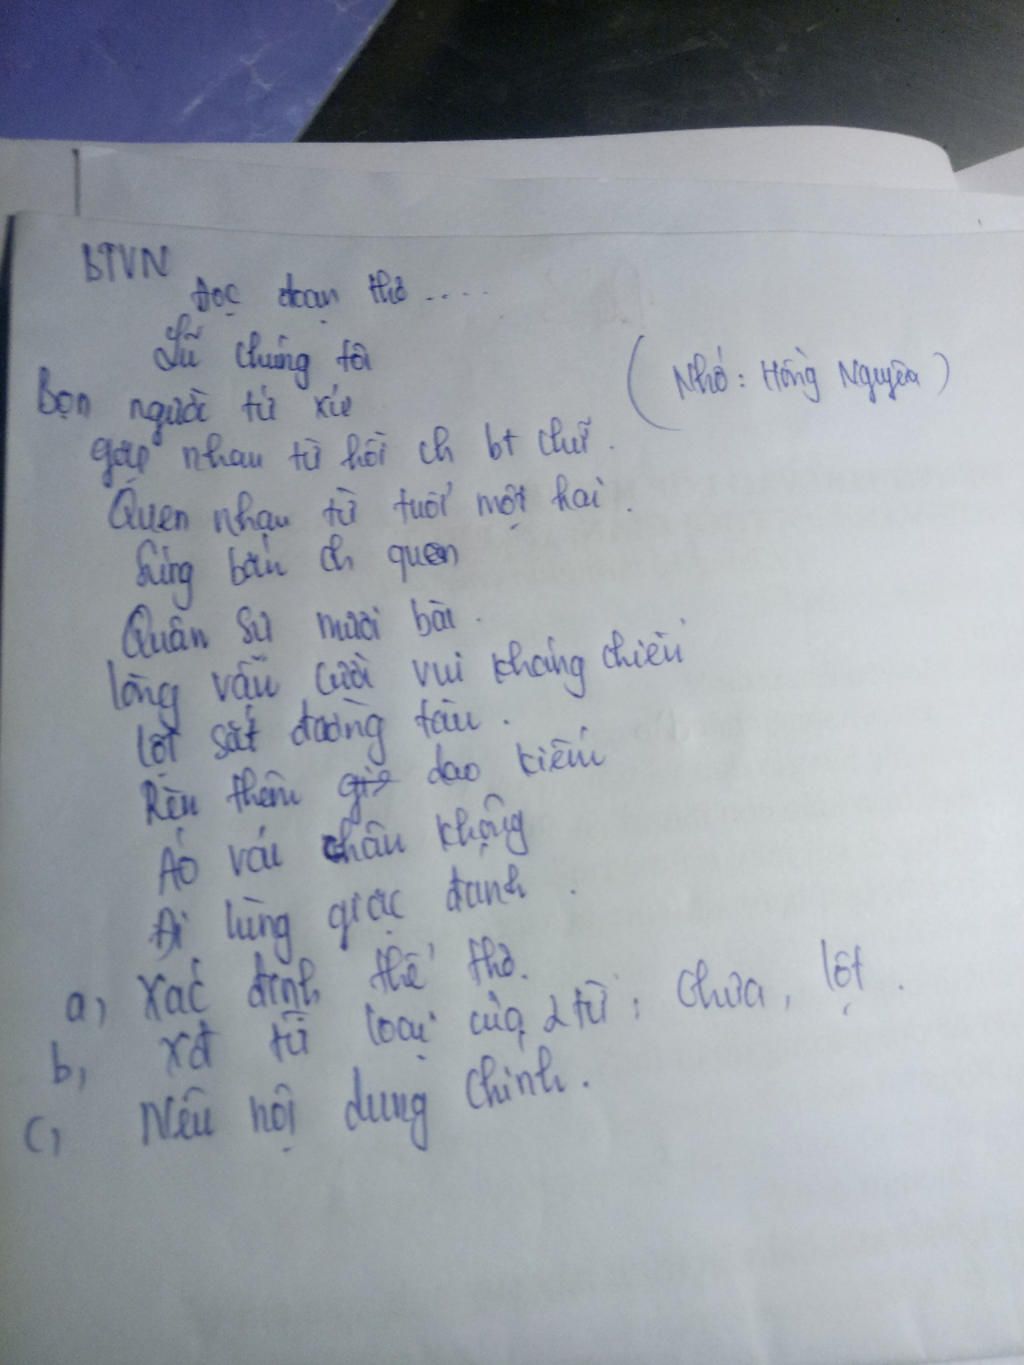 BTVN
Đọc đoạn thơ ....
Lũ chúng tôi
(Nhớ: Hồng Nguyên)
Bọn người tứ xứ
gặp nhau từ hồi ch bt chữ.
Quen nhau từ tuổi một hai.
Súng bắn ch quen
Quân sự mươi bài.
lòng vẫn cười vui kháng chiến
lột sắt đường tàu.
Rèn thêm dao kiếm
Áo vải chân không
Đi lùng giặc đánh.
a, Xác định thể thơ.
b, Xđ từ loại của 2 từ: chưa, lột.
c, Nêu nội dung chính.